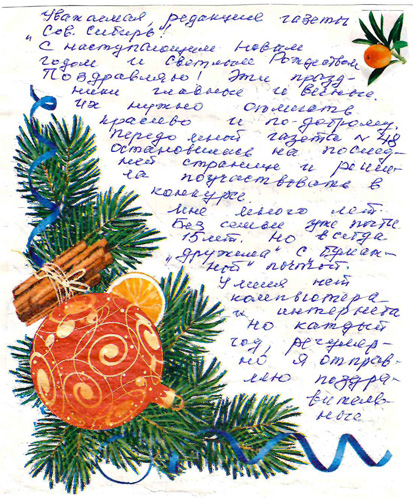 Уважаемая, редакция газеты
„Сов. Сибирь"!
С наступающим Новым
годом и Светлым Рождеством
Поздравляю! Эти празд-
ники главные и вечные.
Их нужно отмечать
красиво и по-доброму.
Передо мной газета № 48
остановилась на послед-
ней странице и реши-
ла поучаствовать в
конкурсе.
Мне много лет.
Без семьи уже почти
15 лет. Но всегда
„дружила" с бумаж-
„ной" почтой.
У меня нет
компьютера
и интернета
но каждый
год, регуляр-
но я отправ-
ляю поздра-
витель-
ные